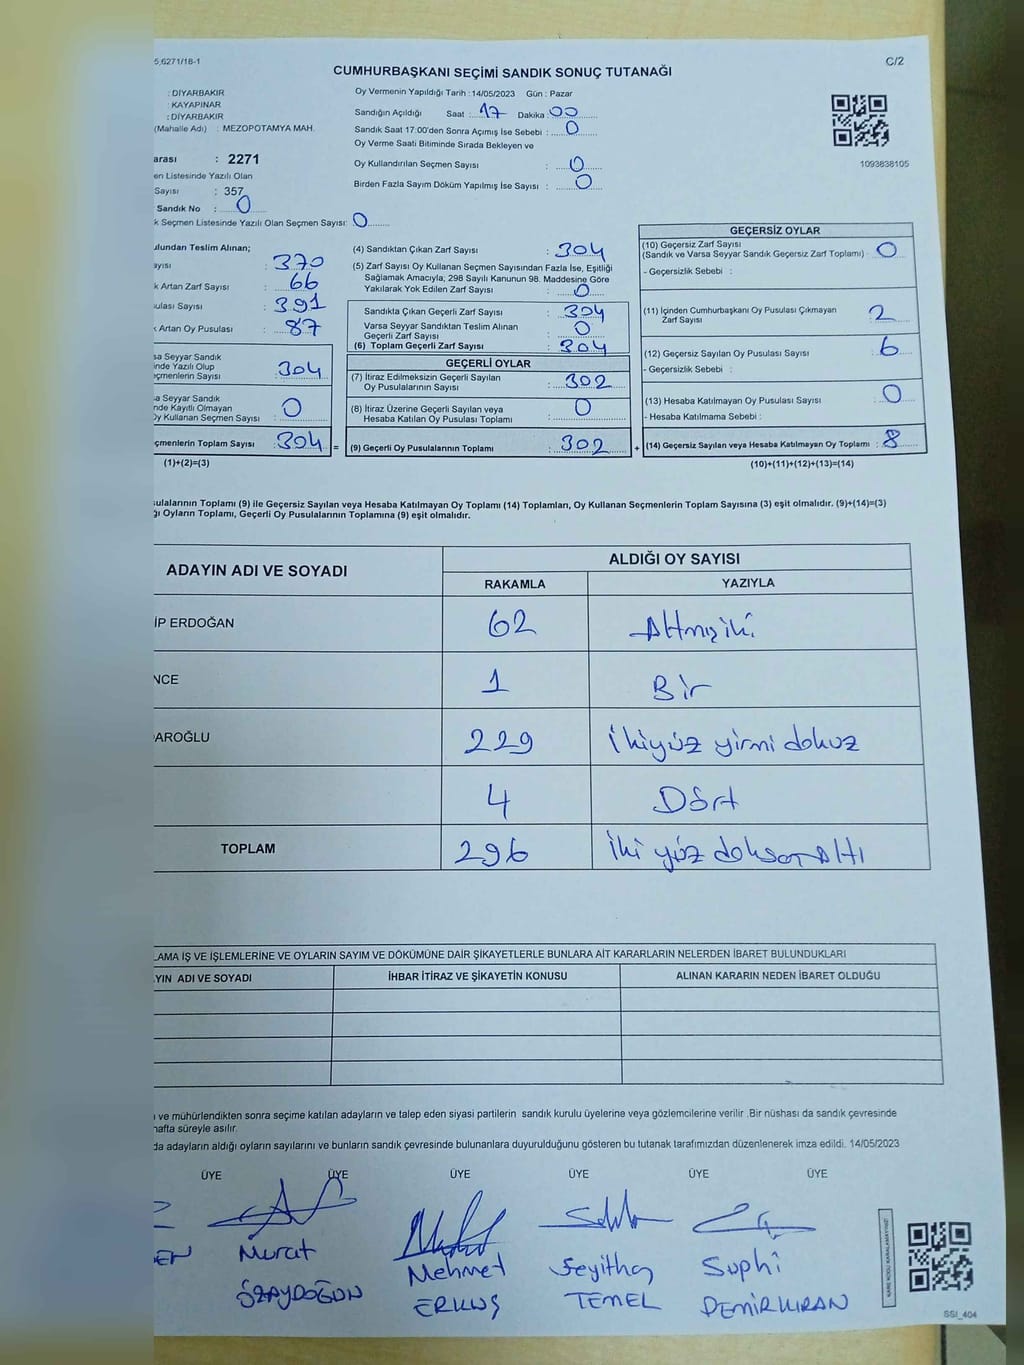 5,6271/18-1
C/2
CUMHURBAŞKANI SEÇİMİ SANDIK SONUÇ TUTANAĞI
: DİYARBAKIR
: KAYAPINAR
: DİYARBAKIR
(Mahalle Adı) : MEZOPOTAMYA MAH.
arası : 2271
en Listesinde Yazılı Olan
Sayısı : 357
Sandık No : 0
k Seçmen Listesinde Yazılı Olan Seçmen Sayısı: 0
Oy Vermenin Yapıldığı Tarih :14/05/2023 Gün : Pazar
Sandığın Açıldığı Saat : 17 Dakika : 00
Sandık Saat 17:00'den Sonra Açımış İse Sebebi : 0
Oy Verme Saati Bitiminde Sırada Bekleyen ve
Oy Kullandırılan Seçmen Sayısı : 0
Birden Fazla Sayım Döküm Yapılmış İse Sayısı : 0
1093838105
ulundan Teslim Alınan;
ayısı : 370
k Artan Zarf Sayısı : 66
ulası Sayısı : 391
k Artan Oy Pusulası : 87
sa Seyyar Sandık
inde Yazılı Olup
eçmenlerin Sayısı : 304
sa Seyyar Sandık
nde Kayıtlı Olmayan
Oy Kullanan Seçmen Sayısı : 0
çmenlerin Toplam Sayısı : 304 =
(1)+(2)=(3)
(4) Sandıktan Çıkan Zarf Sayısı : 304
(5) Zarf Sayısı Oy Kullanan Seçmen Sayısından Fazla İse, Eşitliği
Sağlamak Amacıyla; 298 Sayılı Kanunun 98. Maddesine Göre
Yakılarak Yok Edilen Zarf Sayısı : 0
Sandıkta Çıkan Geçerli Zarf Sayısı : 304
Varsa Seyyar Sandıktan Teslim Alınan
Geçerli Zarf Sayısı : 0
(6) Toplam Geçerli Zarf Sayısı : 304
GEÇERLİ OYLAR
(7) İtiraz Edilmeksizin Geçerli Sayılan
Oy Pusulalarının Sayısı : 302
(8) İtiraz Üzerine Geçerli Sayılan veya
Hesaba Katılan Oy Pusulası Toplamı : 0
(9) Geçerli Oy Pusulalarının Toplamı : 302 +
GEÇERSİZ OYLAR
(10) Geçersiz Zarf Sayısı
(Sandık ve Varsa Seyyar Sandık Geçersiz Zarf Toplamı) : 0
- Geçersizlik Sebebi :
(11) İçinden Cumhurbaşkanı Oy Pusulası Çıkmayan
Zarf Sayısı : 2
(12) Geçersiz Sayılan Oy Pusulası Sayısı : 6
- Geçersizlik Sebebi :
(13) Hesaba Katılmayan Oy Pusulası Sayısı : 0
- Hesaba Katılmama Sebebi :
(14) Geçersiz Sayılan veya Hesaba Katılmayan Oy Toplamı : 8
(10)+(11)+(12)+(13)=(14)
sulalarının Toplamı (9) ile Geçersiz Sayılan veya Hesaba Katılmayan Oy Toplamı (14) Toplamları, Oy Kullanan Seçmenlerin Toplam Sayısına (3) eşit olmalıdır. (9)+(14)=(3)
ğı Oyların Toplamı, Geçerli Oy Pusulalarının Toplamına (9) eşit olmalıdır.
ADAYIN ADI VE SOYADI
ALDIĞI OY SAYISI
RAKAMLA YAZIYLA
İP ERDOĞAN 62 Altmışiki
NCE 1 Bir
DAROĞLU 229 ikiyüz yirmi dokuz
4 Dört
TOPLAM 296 iki yüz doksan Altı
LAMA İŞ VE İŞLEMLERİNE VE OYLARIN SAYIM VE DÖKÜMÜNE DAİR ŞİKAYETLERLE BUNLARA AİT KARARLARIN NELERDEN İBARET BULUNDUKLARI
YIN ADI VE SOYADI İHBAR İTİRAZ VE ŞİKAYETİN KONUSU ALINAN KARARIN NEDEN İBARET OLDUĞU
ı ve mühürlendikten sonra seçime katılan adayların ve talep eden siyasi partilerin sandık kurulu üyelerine veya gözlemcilerine verilir .Bir nüshası da sandık çevresinde
hafta süreyle asılır.
da adayların aldığı oyların sayılarını ve bunların sandık çevresinde bulunanlara duyurulduğunu gösteren bu tutanak tarafımızdan düzenlenerek imza edildi. 14/05/2023
ÜYE ÜYE ÜYE ÜYE ÜYE ÜYE
EN Murat Mehmet Seyithan Suphi
ÖZAYDOĞUN ERKUŞ TEMEL DEMİRKIRAN
KARE KODU KARALAMAYINIZ!
SSI_404